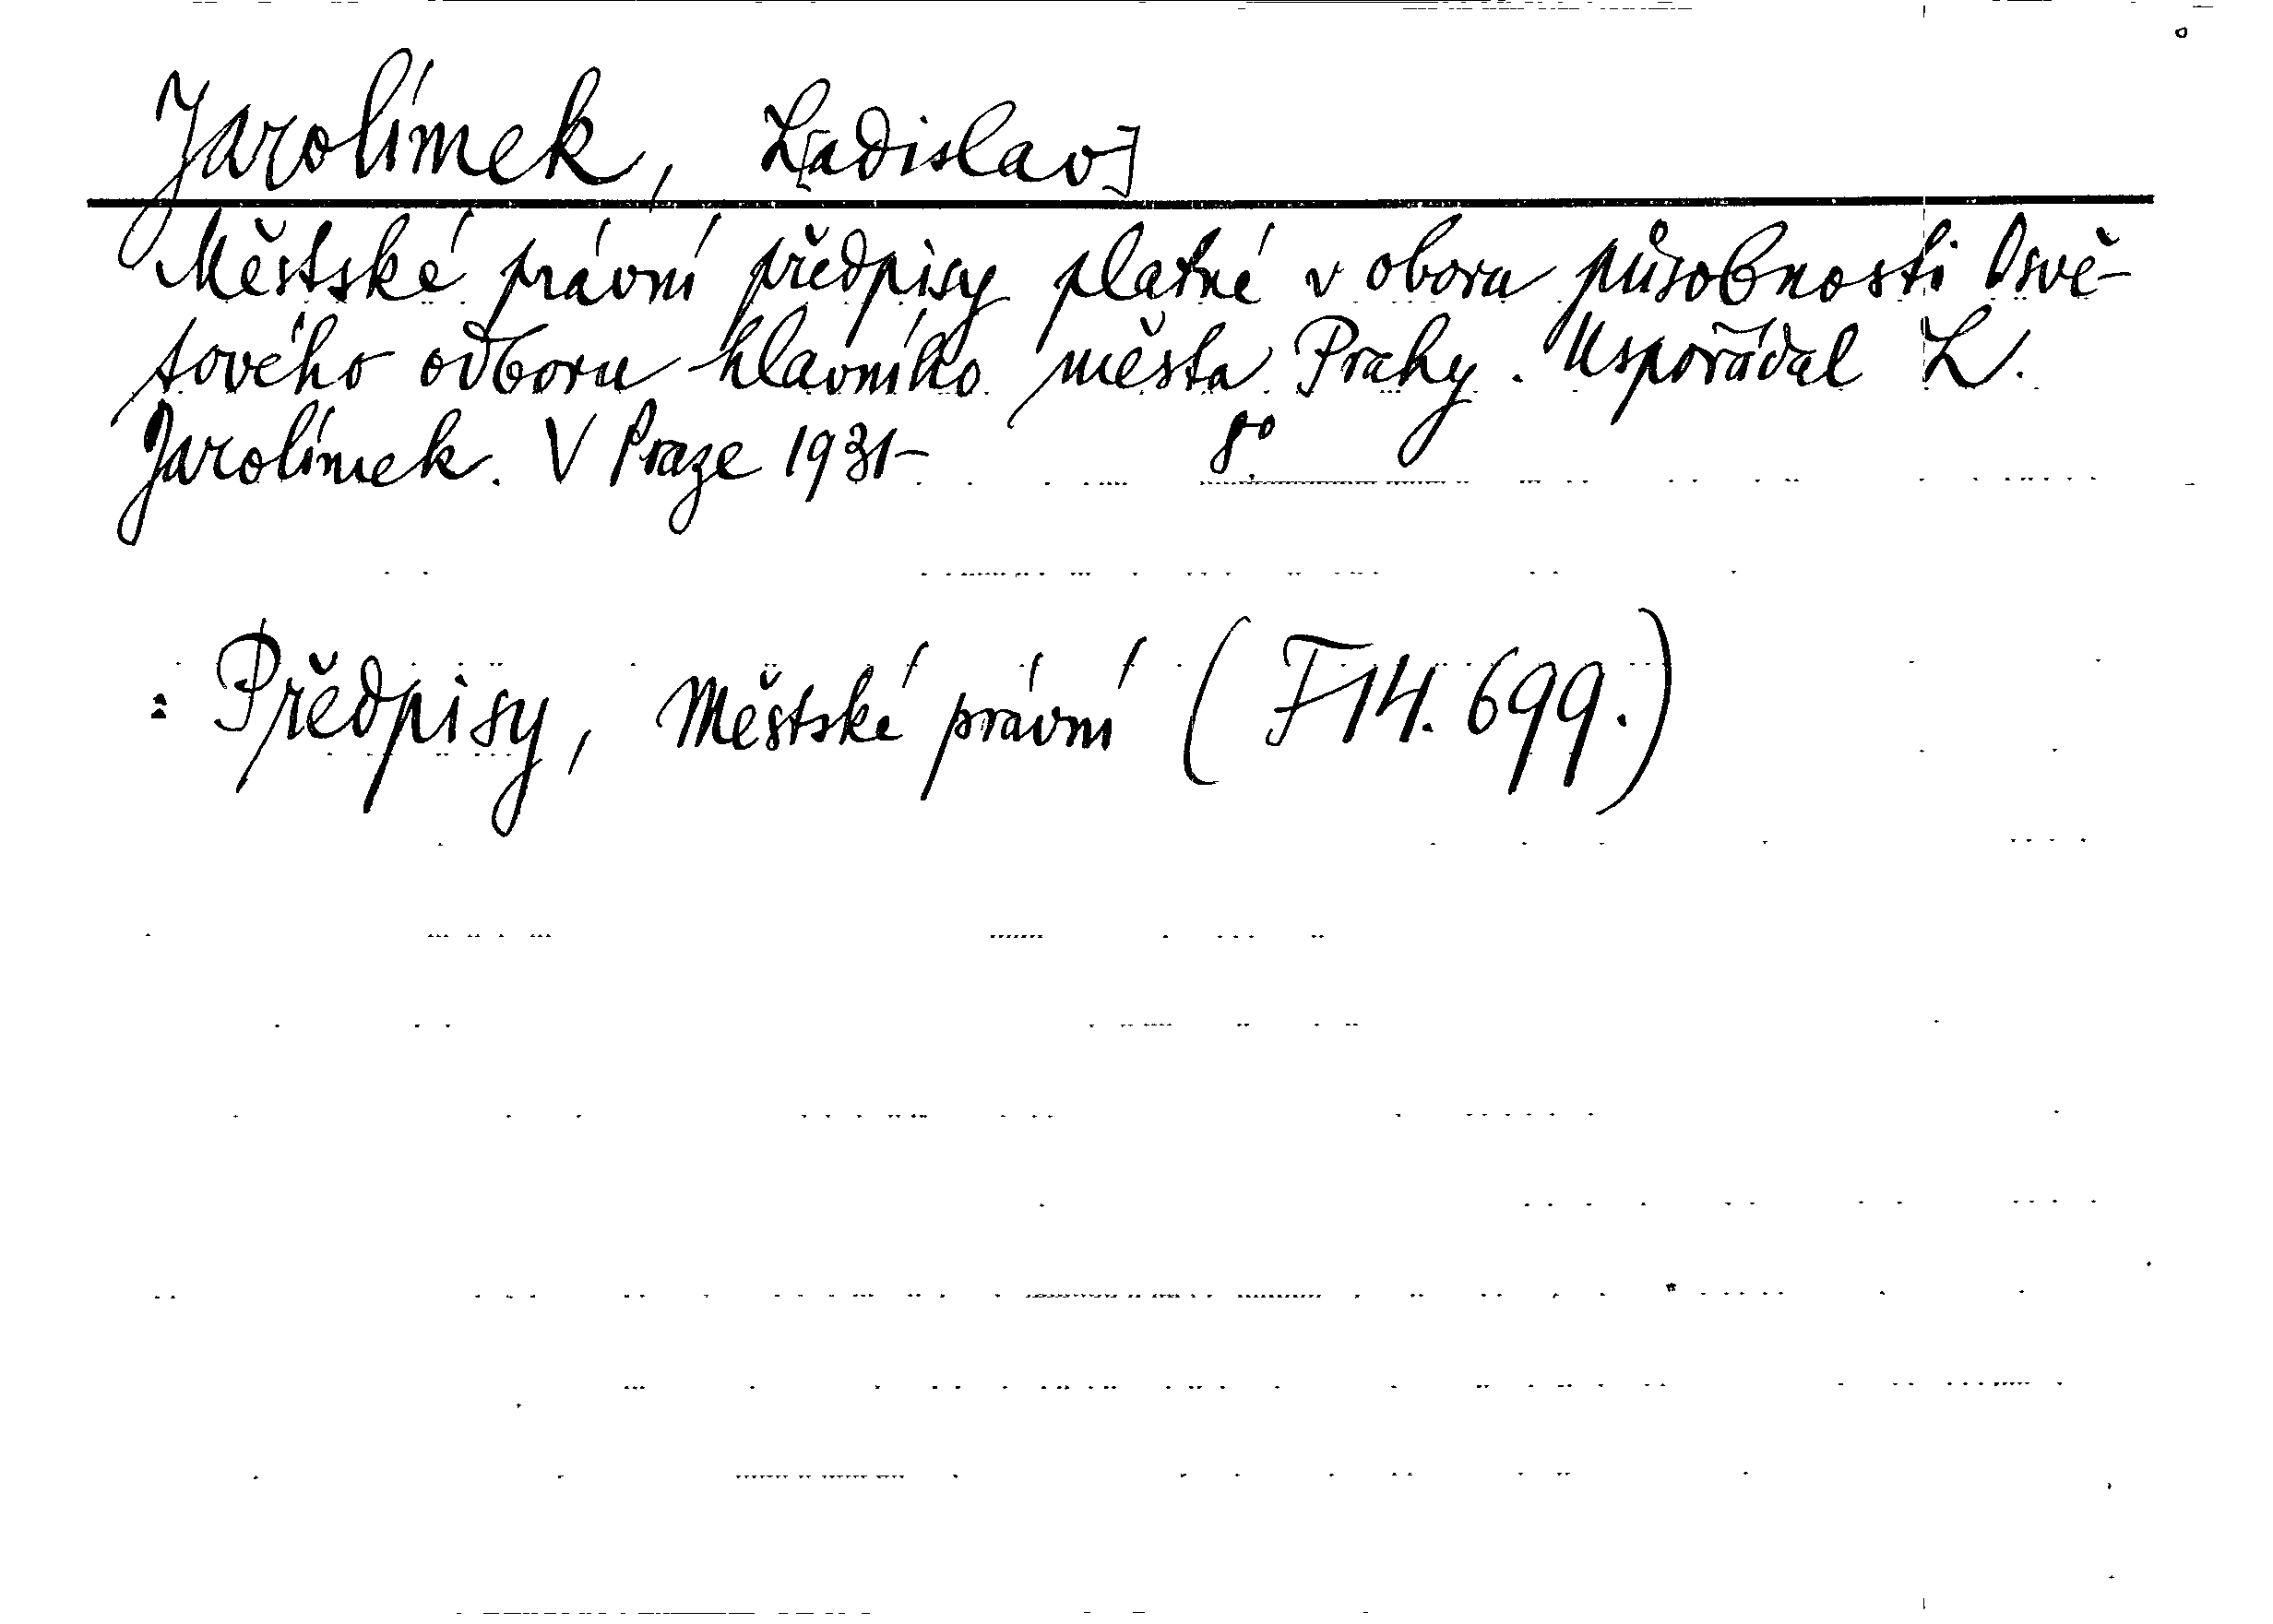 Jarolímek, L[adislav]
Městské právní předpisy platné v oboru působnosti Osvě-
tového odboru hlavního města Prahy. Uspořádal L.
Jarolímek. V Praze 1931- 8°.
: Předpisy, Městské právní (F 14.699.)